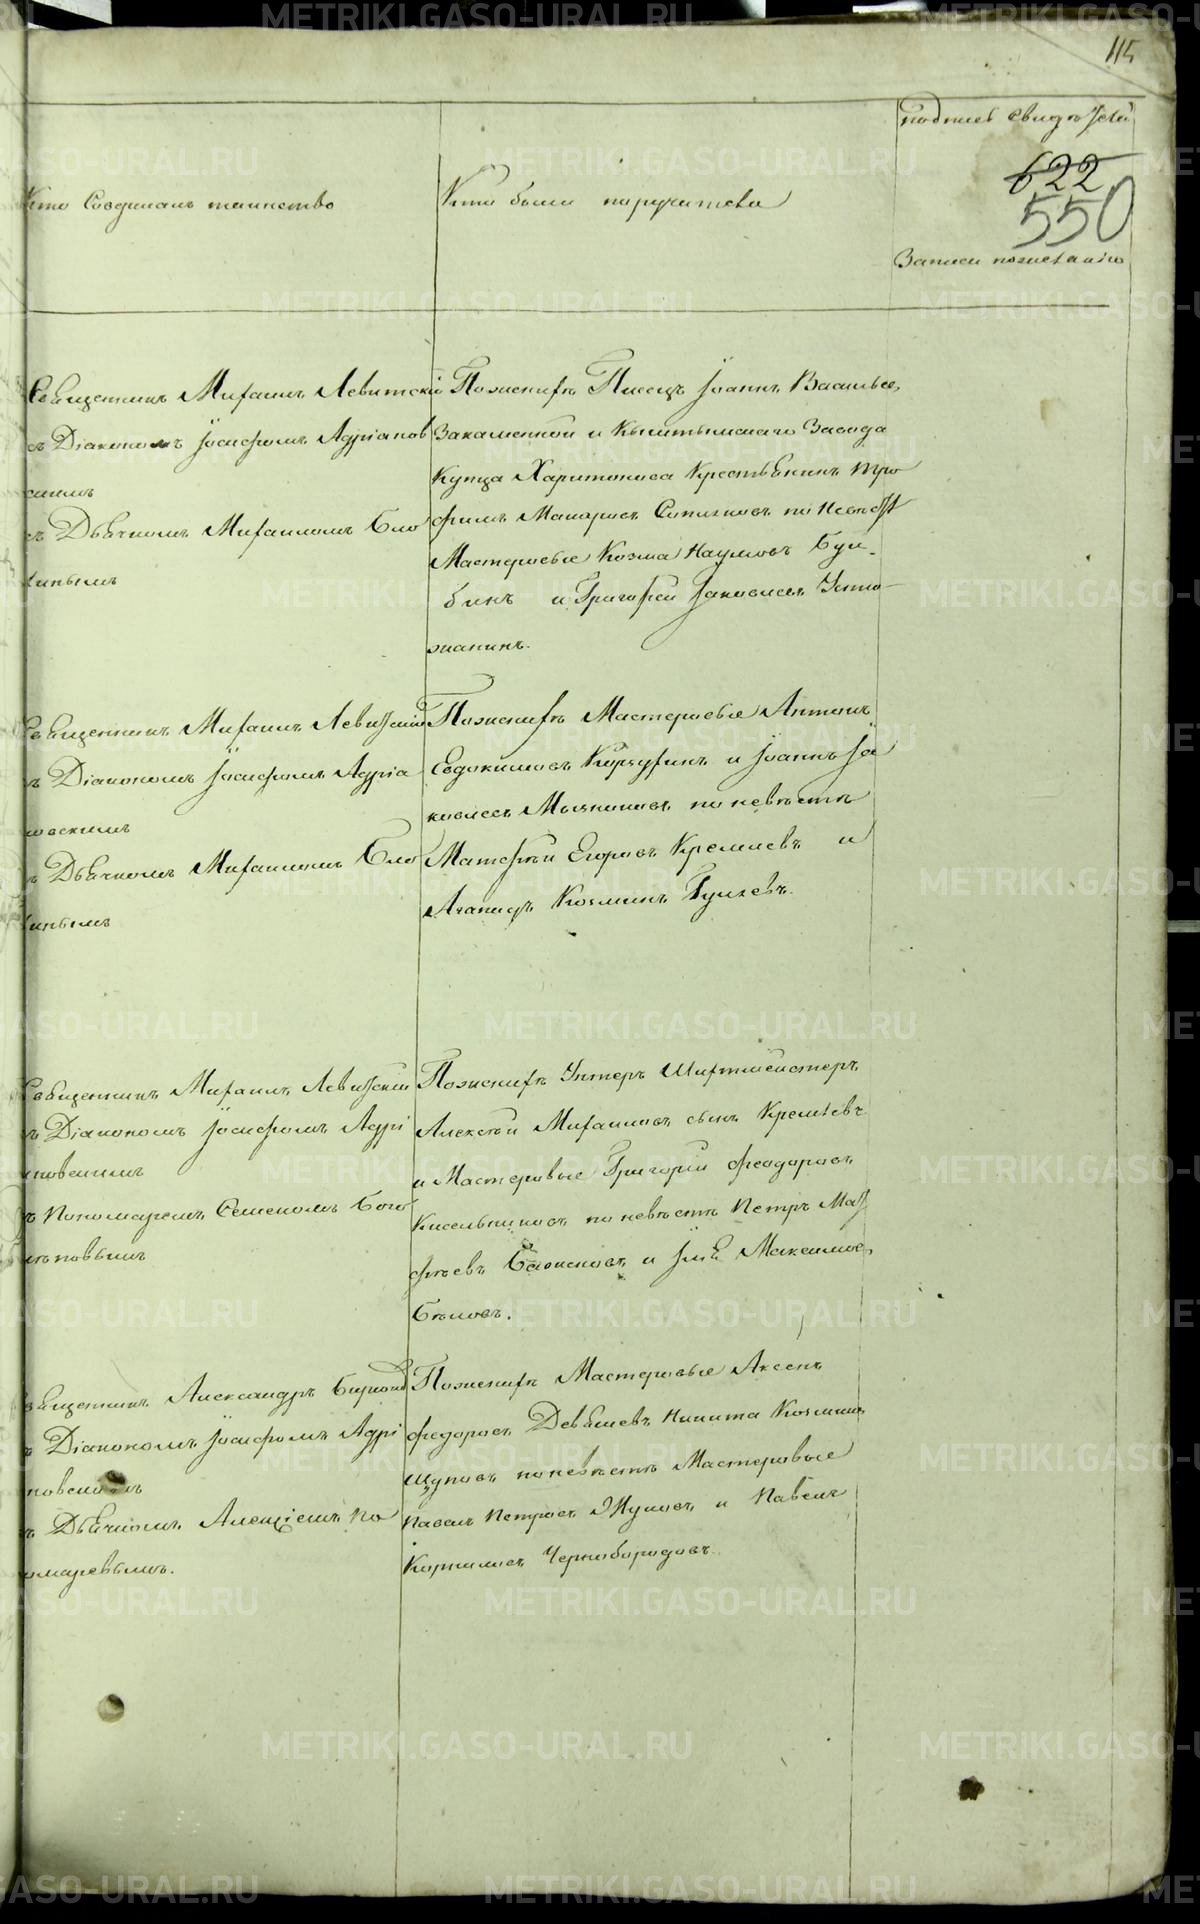 115
Кто Совершалъ таинство
Кто были поручители
подпись свидѣтелей
622
550
Записи по желанію
Священникъ Михаилъ Левитскій
съ Діакономъ Іосифомъ Адріанов
скимъ
съ Дьячкомъ Михаиломъ
Поженихѣ Писецъ Іоаннъ Васильевъ
и Кыштымскаго Завода
Купца Харитонова Крестьянинъ Тро
фимъ Макаровъ по Невѣстѣ
Мастеровые Козма Наумовъ Бун
бинъ и Григорей Іаковлевъ Устю
жанинъ.
Священникъ Михаилъ Левитскій
ъ Діакономъ Іосифомъ Адріа
новскимъ
ъ Дьячкомъ Михаиломъ
Поженихѣ Мастеровые Антонъ
Евдокимовъ и Іоаннъ Іа
ковлевъ Мыльниковъ по невѣстѣ
Матфѣй Егоровъ Кремлевъ и
Агапидъ Козминъ
Священникъ Михаилъ Левитскій
ъ Діакономъ Іосифомъ Адрі
ановскимъ
ъ Пономаремъ Семеномъ Бого
Поженихѣ Унтеръ Шихтмейстеръ
Алексѣй Михаиловъ сынъ Кремлевъ
и Мастеровые Григорій Феодоровъ
Кисельниковъ по невѣстѣ Петръ Мат
фѣевъ Баженовъ и Илья Максимовъ
Бѣловъ.
Священникъ Александръ
ъ Діакономъ Іосифомъ Адрі
ановскимъ
ъ Дьячкомъ Алексіемъ По
номаревымъ.
Поженихѣ Мастеровые Аксенъ
Федоровъ Никита Козминъ
Щуповъ по невѣстѣ Мастеровые
Павелъ Петровъ Жуковъ и Павелъ
Корниловъ Чернобородовъ.
METRIKI.GASO-URAL.RU